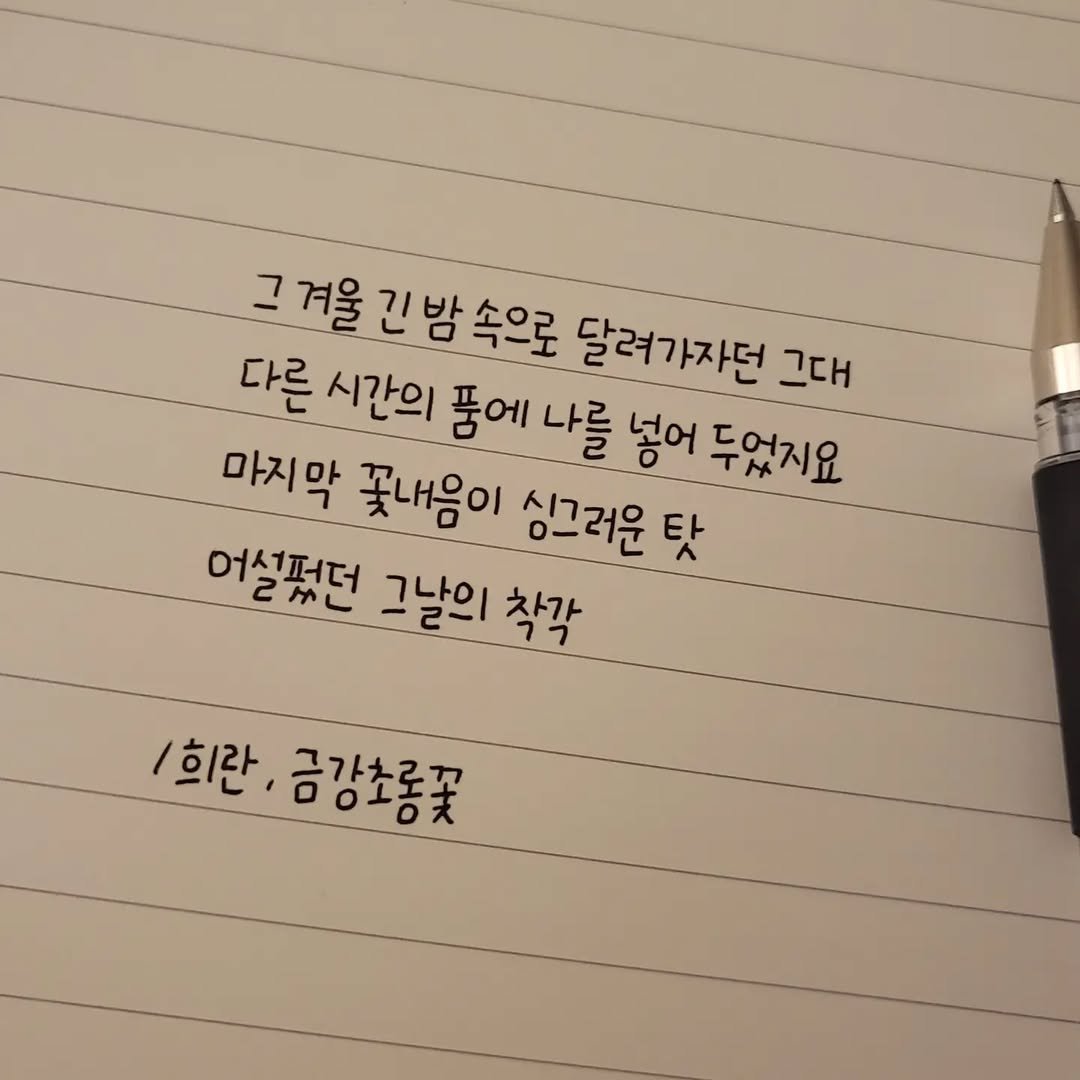 그 겨울 긴 밤 속으로 달려가자던 그대
다른 시간의 품에 나를 넣어 두었지요
마지막 꽃내음이 싱그러운 탓
어설펐던 그날의 착각
/ 희란, 금강초롱꽃